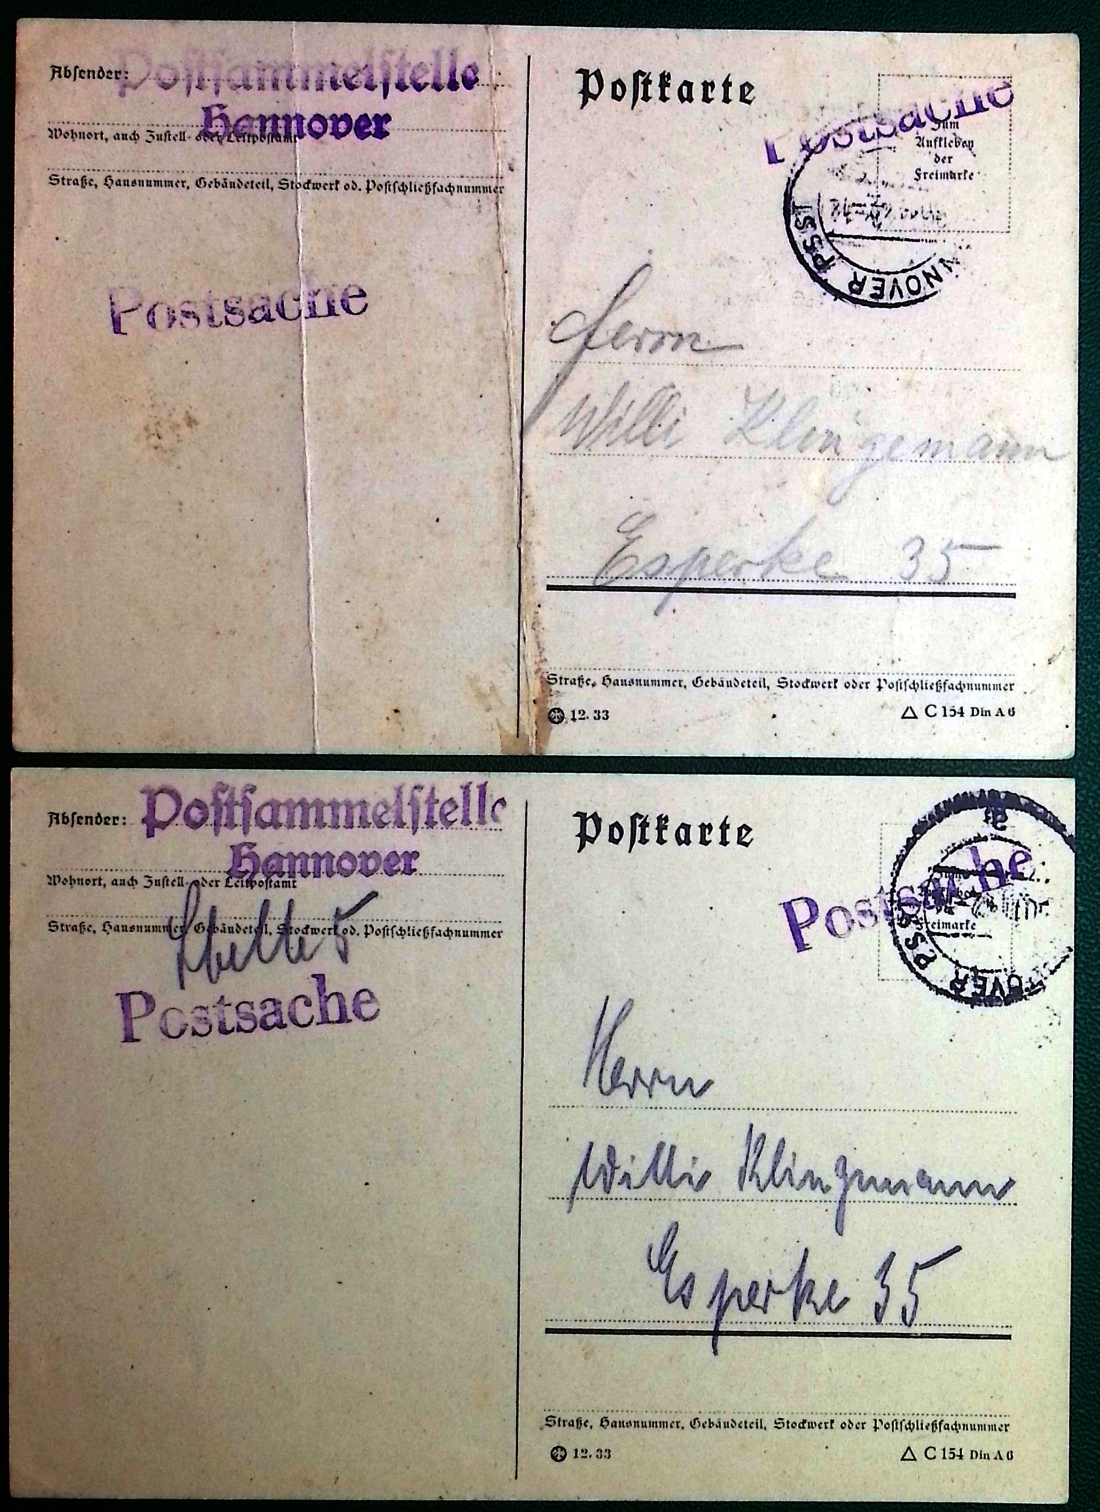 Absender:
Postsammelstelle
Hannover
Wohnort, auch Zustell- oder Leitpostamt
Straße, Hausnummer, Gebäudeteil, Stockwerk od. Postschließfachnummer
Postsache
Postkarte
Postsache
Zum
Aufkleben
der
Freimarke
HANNOVER PSST
Herrn
Willi Klingemann
Esperke 35
Straße, Hausnummer, Gebäudeteil, Stockwerk oder Postschließfachnummer
12. 33
C 154 Din A 6
Absender:
Postsammelstelle
Hannover
Wohnort, auch Zustell- oder Leitpostamt
Straße, Hausnummer, Gebäudeteil, Stockwerk od. Postschließfachnummer
Postsache
Postkarte
Postsache
Freimarke
Herrn
Willi Klingemann
Esperke 35
Straße, Hausnummer, Gebäudeteil, Stockwerk oder Postschließfachnummer
12. 33
C 154 Din A 6